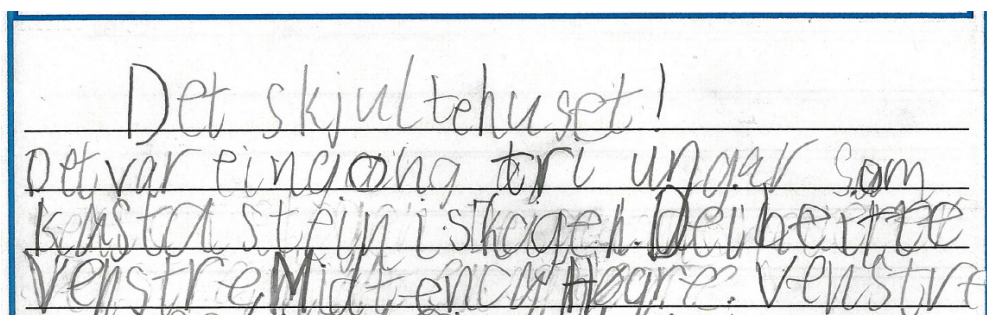 Det skjultehuset!
Det var ein gong tri ungar som
kasta stein i skogen. Dei heitte
Venstre, Midten og Høgre. Venstre